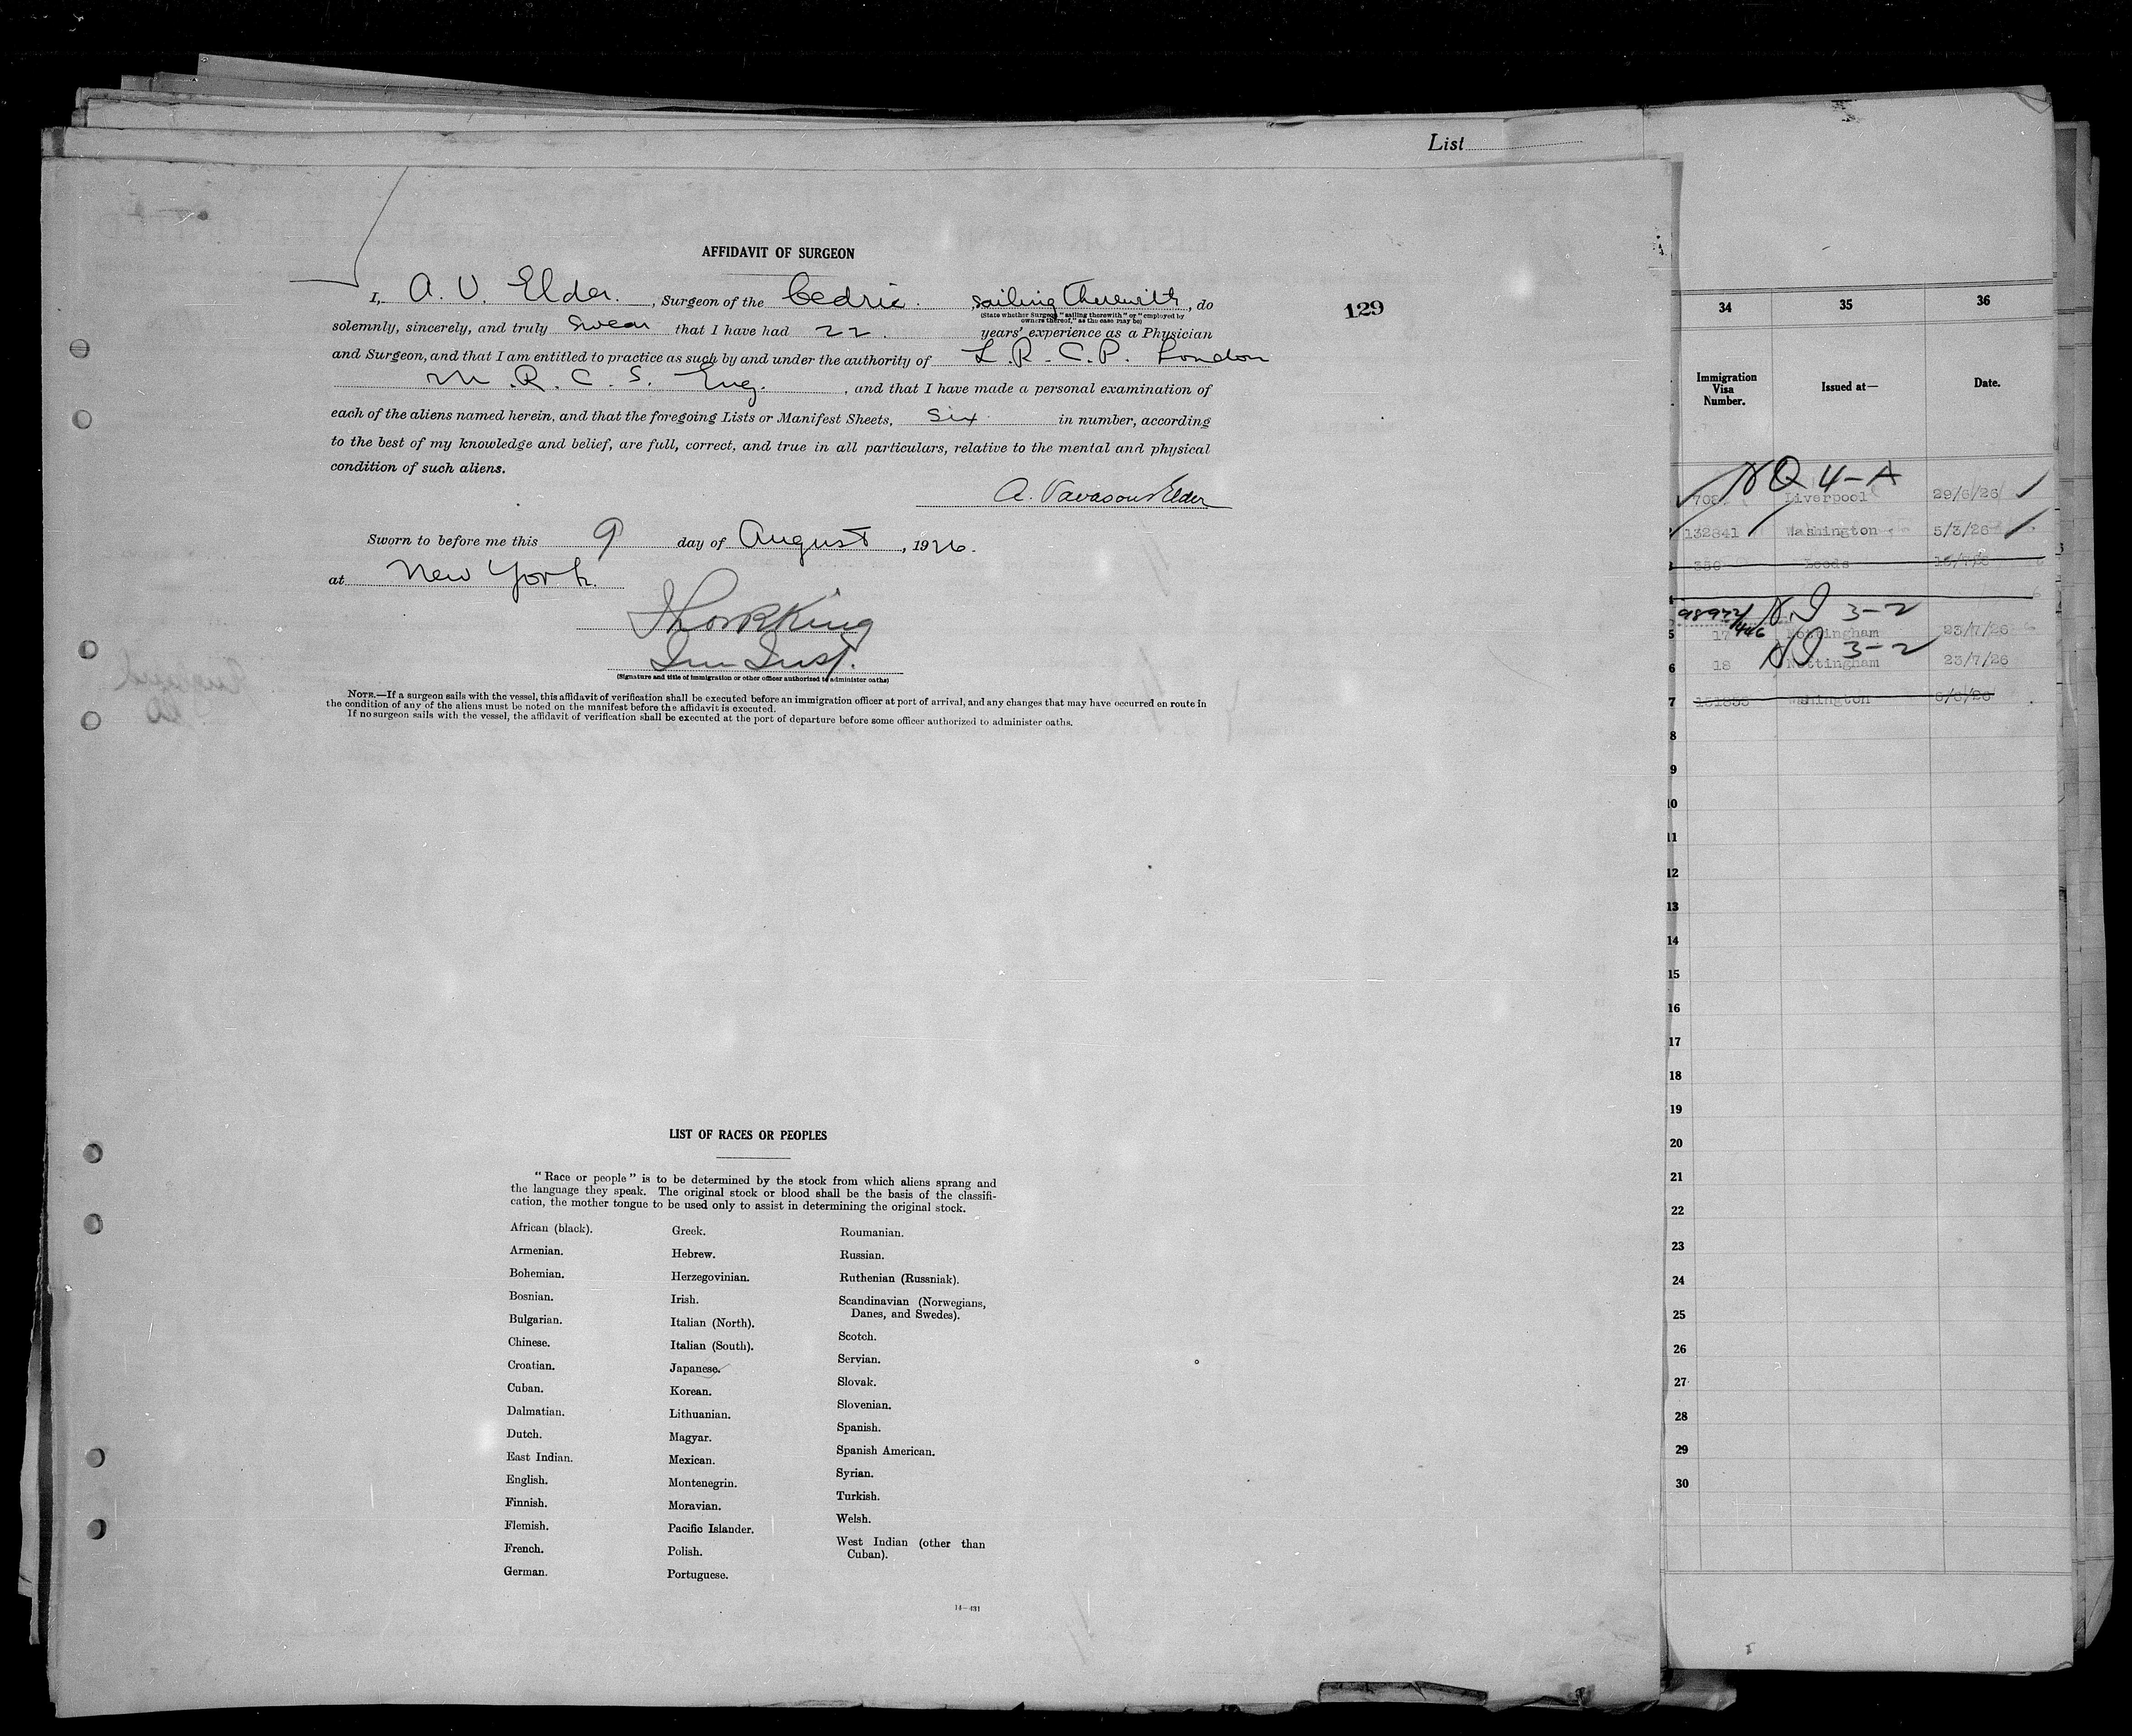 List
AFFIDAVIT OF SURGEON
I, A. V. Elder, Surgeon of the Cedric, sailing therewith, do
(State whether Surgeon "sailing therewith" or "employed by
owners thereof," as the case may be)
129
solemnly, sincerely, and truly swear that I have had 22 years' experience as a Physician
and Surgeon, and that I am entitled to practice as such by and under the authority of L.R.C.P. London
M.R.C.S. Eng., and that I have made a personal examination of
each of the aliens named herein, and that the foregoing Lists or Manifest Sheets, six in number, according
to the best of my knowledge and belief, are full, correct, and true in all particulars, relative to the mental and physical
condition of such aliens.
A. Vavasour Elder
Sworn to before me this 9 day of August, 1926.
at New York.
Imm Insp.
(Signature and title of immigration or other officer authorized to administer oaths)
NOTE.—If a surgeon sails with the vessel, this affidavit of verification shall be executed before an immigration officer at port of arrival, and any changes that may have occurred en route in
the condition of any of the aliens must be noted on the manifest before the affidavit is executed.
If no surgeon sails with the vessel, the affidavit of verification shall be executed at the port of departure before some officer authorized to administer oaths.
LIST OF RACES OR PEOPLES
"Race or people" is to be determined by the stock from which aliens sprang and
the language they speak. The original stock or blood shall be the basis of the classifi-
cation, the mother tongue to be used only to assist in determining the original stock.
African (black).
Armenian.
Bohemian.
Bosnian.
Bulgarian.
Chinese.
Croatian.
Cuban.
Dalmatian.
Dutch.
East Indian.
English.
Finnish.
Flemish.
French.
German.
Greek.
Hebrew.
Herzegovinian.
Irish.
Italian (North).
Italian (South).
Japanese.
Korean.
Lithuanian.
Magyar.
Mexican.
Montenegrin.
Moravian.
Pacific Islander.
Polish.
Portuguese.
Roumanian.
Russian.
Ruthenian (Russniak).
Scandinavian (Norwegians,
Danes, and Swedes).
Scotch.
Servian.
Slovak.
Slovenian.
Spanish.
Spanish American.
Syrian.
Turkish.
Welsh.
West Indian (other than
Cuban).
14—431
34 35 36
Immigration
Visa
Number.
Issued at—
Date.
NQ 4-A
708 Liverpool 29/6/26
132841 Washington 5/3/26
Leeds
98922/446 3-2
5 17 Nottingham 23/7/26
3-2
6 18 Nottingham 23/7/26
7 Washington
8
9
10
11
12
13
14
15
16
17
18
19
20
21
22
23
24
25
26
27
28
29
30